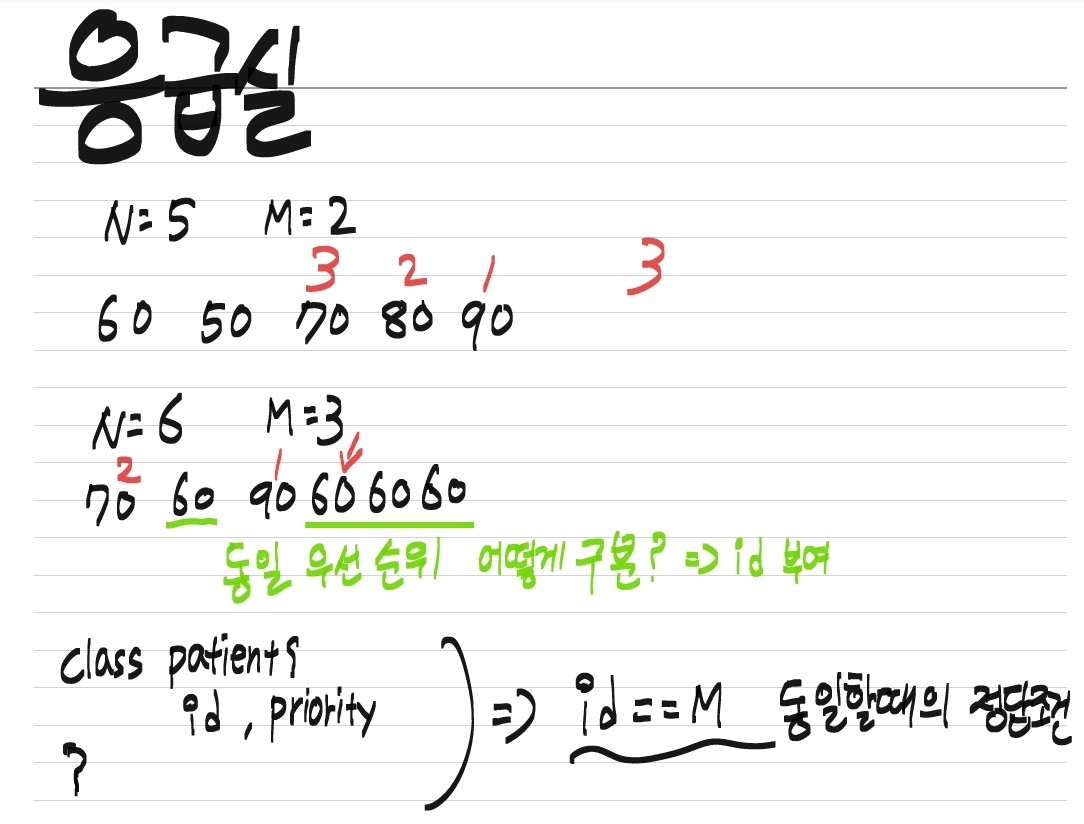 응급실
N=5 M=2
3 2 1 3
60 50 70 80 90
N=6 M=3
2 1
70 60 90 60 60 60
동일 우선 순위 어떻게 구분? => id 부여
class patient{
id, priority
}
=> id==M 동일할때의 정답조건